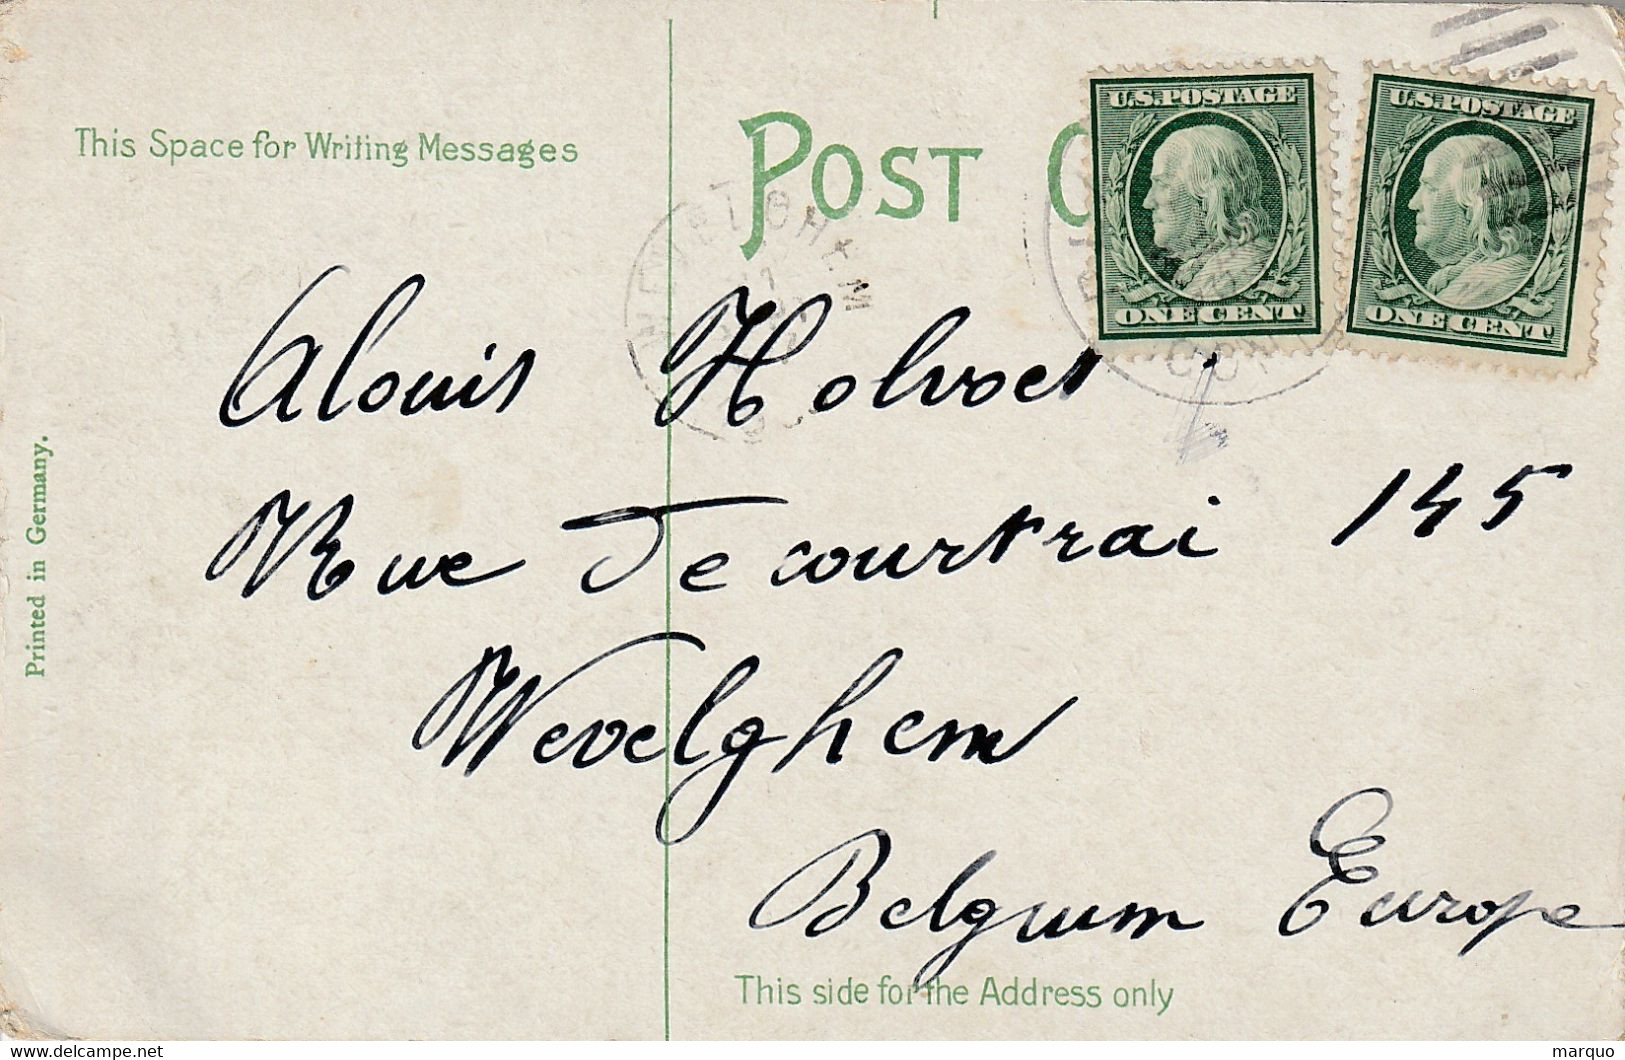 This Space for Writing Messages
POST C
U.S. POSTAGE
ONE CENT
U.S. POSTAGE
ONE CENT
CONN
Alouis Holvoet
Rue de courtrai 145
Wevelghem
Belgium Europe
This side for the Address only
Printed in Germany.
delcampe.net
marquo